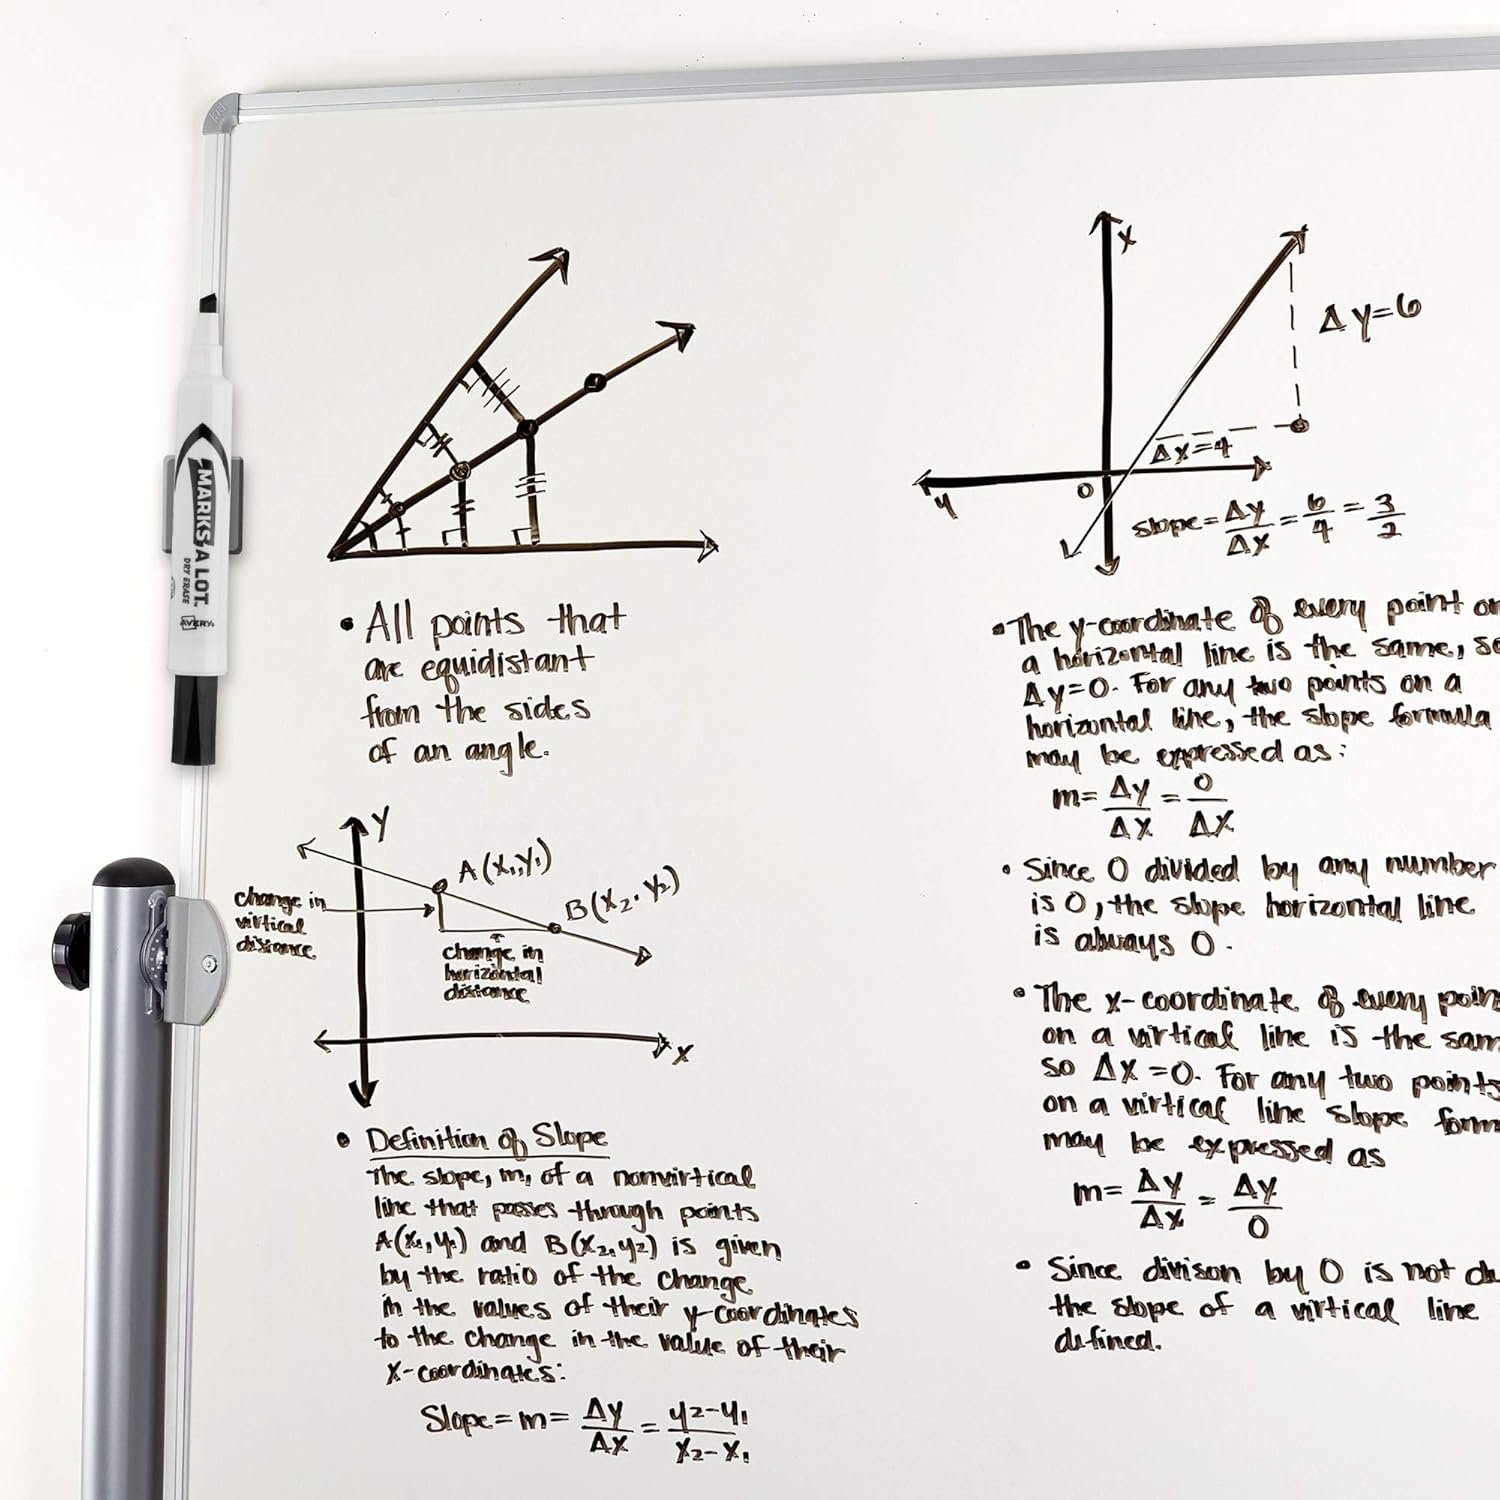 MARKS A LOT
DRY ERASE
AVERY
• All points that
are equidistant
from the sides
of an angle.
Y
A(x₁,y₁)
B(x₂,y₂)
change in
virtical
distance
change in
horizontal
distance
x
• Definition of Slope
The slope, m, of a nonvirtical
line that passes through points
A(x₁,y₁) and B(x₂,y₂) is given
by the ratio of the change
in the values of their y-coordinates
to the change in the value of their
x-coordinates:
Slope = m = Δy/Δx = y₂-y₁/x₂-x₁
x
Δy=6
Δx=4
y
0
slope = Δy/Δx = 6/4 = 3/2
• The y-coordinate of every point on
a horizontal line is the same, so
Δy=0. For any two points on a
horizontal line, the slope formula
may be expressed as:
m= Δy/Δx = 0/Δx
• Since 0 divided by any number
is 0, the slope horizontal line
is always 0.
• The x-coordinate of every poin
on a virtical line is the sam
so Δx=0. For any two points
on a virtical line slope form
may be expressed as
m= Δy/Δx = Δy/0
• Since divison by 0 is not de
the slope of a virtical line
defined.